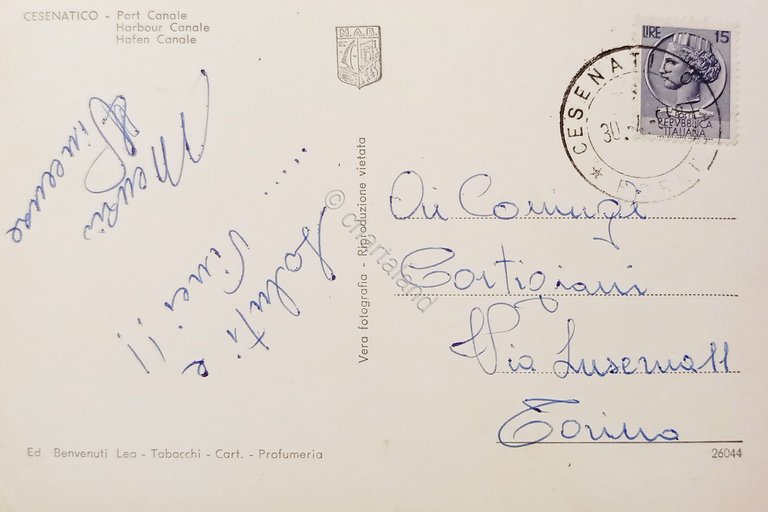 CESENATICO - Port Canale
Harbour Canale
Hafen Canale
M.A.B.
LIRE 15
REPVBBLICA
ITALIANA
CESENATICO
30
..... Saluti e
Mauri
Vera fotografia - Riproduzione vietata
© chartaland
Ai Coniugi
Cortigiani
Via Luserna 11
Torino
Ed. Benvenuti Lea - Tabacchi - Cart. - Profumeria
26044